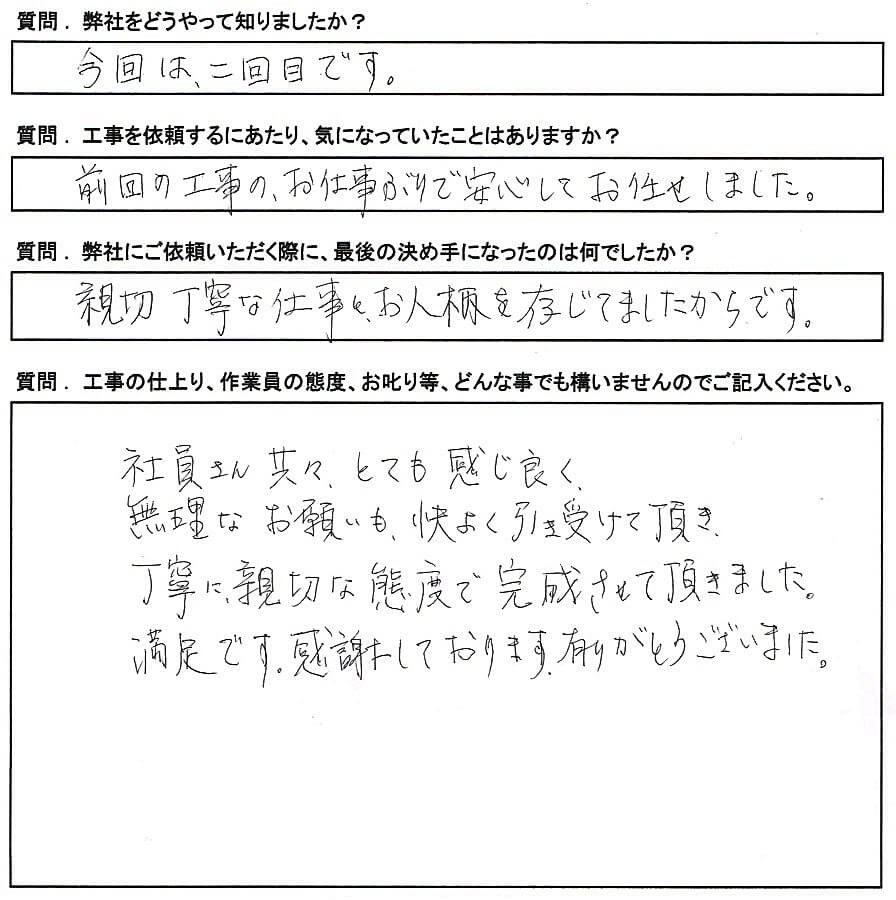 質問．弊社をどうやって知りましたか？
今回は、二回目です。
質問．工事を依頼するにあたり、気になっていたことはありますか？
前回の工事の、お仕事ぶりで安心してお任せしました。
質問．弊社にご依頼いただく際に、最後の決め手になったのは何でしたか？
親切丁寧な仕事と、お人柄を存じてましたからです。
質問．工事の仕上り、作業員の態度、お叱り等、どんな事でも構いませんのでご記入ください。
社員さん共々、とても感じ良く、
無理なお願いも、快よく引き受けて頂き、
丁寧に、親切な態度で完成させて頂きました。
満足です。感謝しております。有りがとうございました。